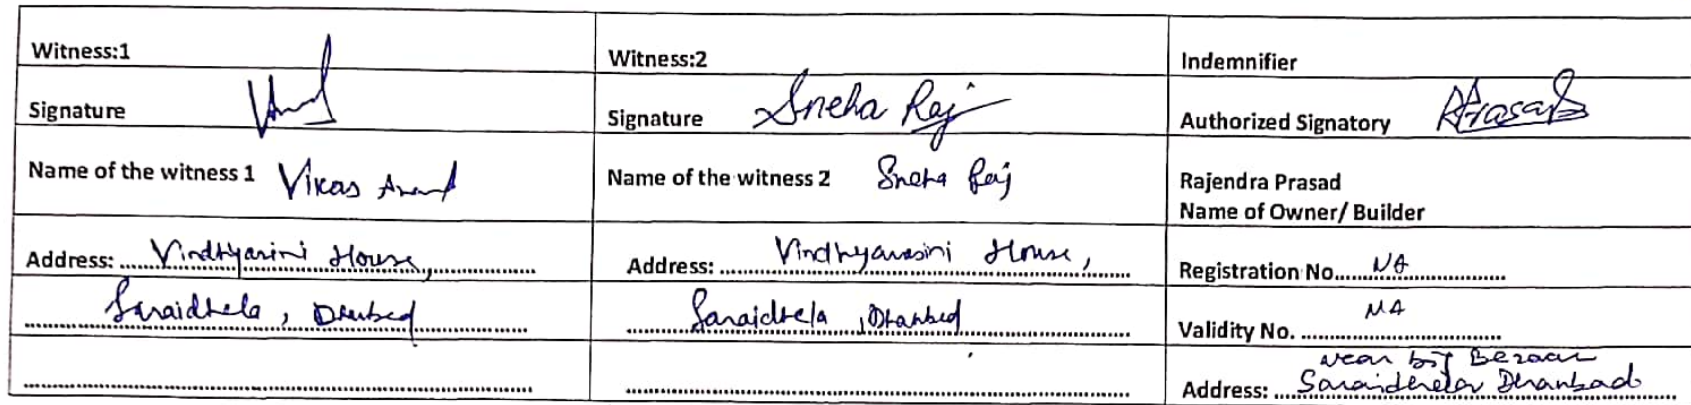 Witness:1 Witness:2 Indemnifier
Signature Signature Sneha Raj Authorized Signatory RPrasad
Name of the witness 1 Vikas Anand Name of the witness 2 Sneha Raj Rajendra Prasad
Name of Owner/ Builder
Address: Vindhyasini House, Address: Vindhyavasini House, Registration No. NA
Saraidhela, Dhanbad Saraidhela, Dhanbad Validity No. NA
near big Bazaar
Address: Saraidhela Dhanbad